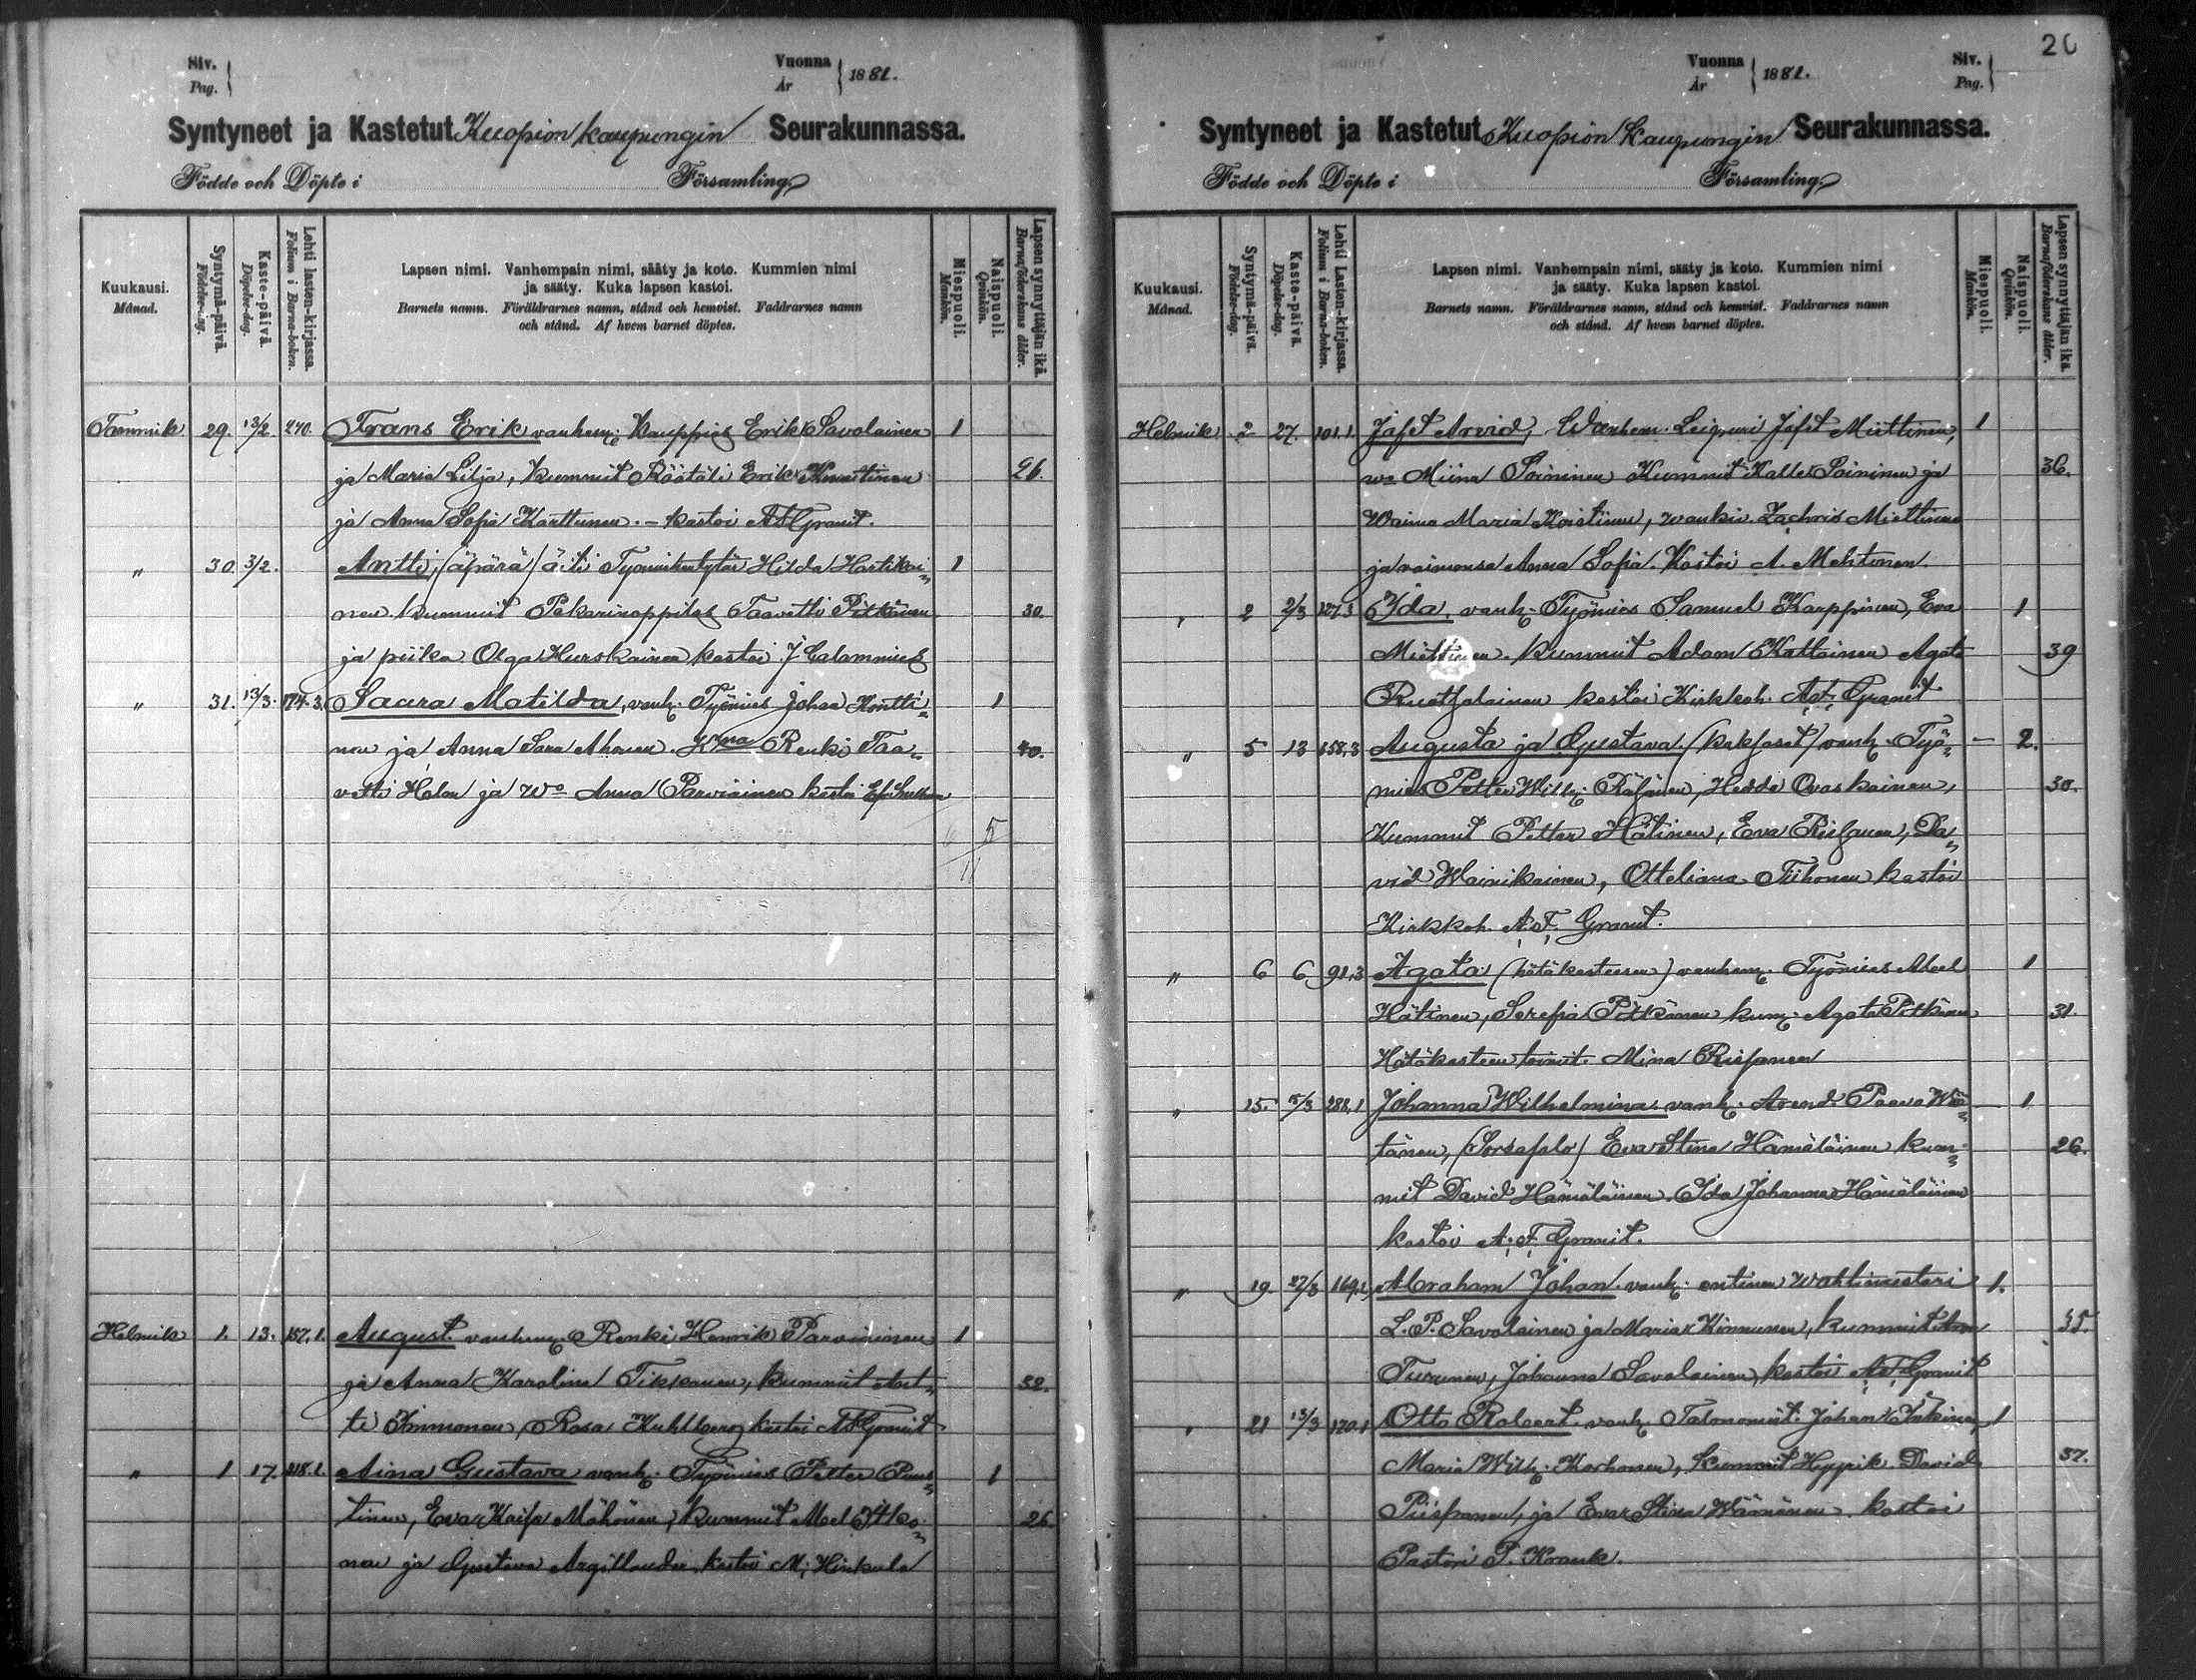 Siv.
Pag.
Vuonna
År
1881.
Syntyneet ja Kastetut Kuopion kaupungin Seurakunnassa.
Födde och Döpte i Församling
Kuukausi.
Månad.
Syntymä-päivä.
Födelse-dag.
Kaste-päivä.
Döpelse-dag.
Lehti lasten-kirjassa.
Folium i Barna-boken.
Lapsen nimi. Vanhempain nimi, sääty ja koto. Kummien nimi
ja sääty. Kuka lapsen kastoi.
Barnets namn. Föräldrarnes namn, stånd och hemvist. Faddrarnes namn
och stånd. Af hvem barnet döptes.
Miespuoli.
Mankön.
Naispuoli.
Qvinkön.
Lapsen synnyttäjän ikä.
Barnaföderskans ålder.
Tammik 29. 13/2. 270. Frans Erik vanhem: Kauppias Erik Savolainen 1
ja Maria Lilja, Kummit Räätäli Erik 26.
ja Anna Sofia Karttunen. - kastoi AFGranit.
" 30. 3/2. Antti, (äpärä) äiti Työmiehentytär Hilda Hartikai„ 1
nen. kummit Pekarinoppilas Taavetti Pitkänen 30.
ja piika Olga Hurskainen kastoi J Calamnius
" 31. 13/3. 174.3. Saara Matilda, vanh. Työmies Johan Kontti„ 1
nen ja Anna Sara Ahonen. Renki Taa„ 40.
vetti ja Wo Anna Parviainen kastoi
6 5
11
Helmik 1. 13. 157.1. August. vanhem. Renki Henrik Parviainen 1
ja Anna Karolina Tikkanen, Kummit Ant„ 32.
ti Immonen, Rosa kastoi AFGranit
" 1 17. 218.1. Aina Gustava vanh. Työmies Petter Puus„ 1
tinen, Eva Kaisa Mähönen, kummit Itko„ 26.
nen ja Gustava Argillander, kastoi M. Hinkula
20
Vuonna
År
1881.
Siv.
Pag.
Syntyneet ja Kastetut Kuopion Kaupungin Seurakunnassa.
Födde och Döpte i Församling
Kuukausi.
Månad.
Syntymä-päivä.
Födelse-dag.
Kaste-päivä.
Döpelse-dag.
Lehti Lasten-kirjassa.
Folium i Barna-boken.
Lapsen nimi. Vanhempain nimi, sääty ja koto. Kummien nimi
ja sääty. Kuka lapsen kastoi.
Barnets namn. Föräldrarnes namn, stånd och hemvist. Faddrarnes namn
och stånd. Af hvem barnet döptes.
Miespuoli.
Mankön.
Naispuoli.
Qvinkön.
Lapsen synnyttäjän ikä.
Barnaföderskans ålder.
Helmik 2 27. 101.1. Jafet Arvid, Wanhem. Leipuri Jafet Miettinen, 1
wo Miina Soininen Kummit Kalle Soininen ja 36.
Waimo Maria Koistinen, Zachris Miettinen
ja vaimonsa Anna Sofia. Kastoi A. Mehtonen.
" 2 2/3 127.3 Ida, vanh. Työmies Samuel Karppinen, Eva 1
Miettinen. Kummit Adam Kattainen Agata 39
Ruotsalainen kastoi Kirkkoh. A. F. Granit
" 5 13 158,3 Augusta ja Gustava. (kaksoset) vanh. Työ„ — 2.
mies Petter Wilh. Räsänen, Hedda Ovaskainen, 30.
Kummit Petter Hätinen, Eva Rissanen, Da„
vid Wainikainen, Otteliana Tiihonen kastoi
Kirkkoh. A. F. Granit.
" 6 6 91,3 Agata. (hätäkasteesen) vanhem. Työmies Abel 1
Hätinen, Serefia Pitkänen kum. Agata Pitkänen 31.
Hätäkasteen toimit. Mina Rissanen
" 15. 5/3 288,1 Johanna Wilhelmina. vanh. Arend. Paavo Wää„ 1
tänen, (Sorsasalo) Eva Stina Hämäläinen kum„ 26.
mit David Hämäläinen. Ida Johanna Hämäläinen
kastoi A. F. Granit.
" 19. 27/3 Abraham Johan. vanh. entinen Wahtimestari 1.
L. P. Savolainen ja Maria Kinnunen, kummit 35.
Turunen, Johanna Savolainen, kastoi A. F. Granit
" 21 13/3 170.1 Otto Robert. vanh. Talonomist. Johan 1
Maria Wilh. Korhonen, Kummit Hyyrik. David 37.
Piispanen, ja Eva Stina Wäänänen. kastoi
Pastori P. Krank.